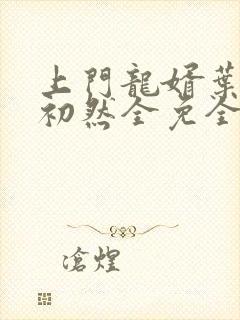 上門龍婿葉
初然全免全
滄煌